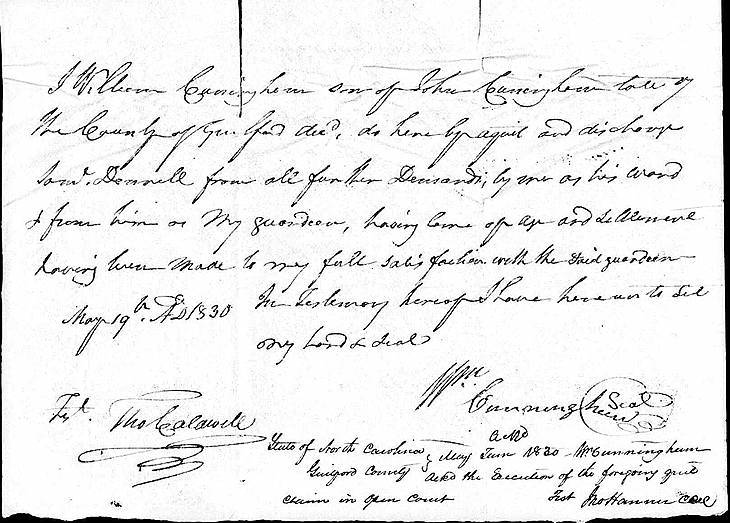 I William Cuningham son of John Cuningham late of
the County of Guilford decd, do here by aquit and discharge
Saml. Donnell from all further Demands, by me as his ward
& from him as My guardean, having come of age and Settlement
having been made to my full satisfaction with the said guardean
May 19th. AD 1830 In Testimony hereof I have here unto Set
my hand & Seal
Wm
Cunningham Seal
Test. Tho Caldwell
ackd
State of North Carolina } May Term 1830 - Wm Cunningham
Guilford County } ackd the Execution of the foregoing quit
claim in open Court Test Jno Hanner CCC